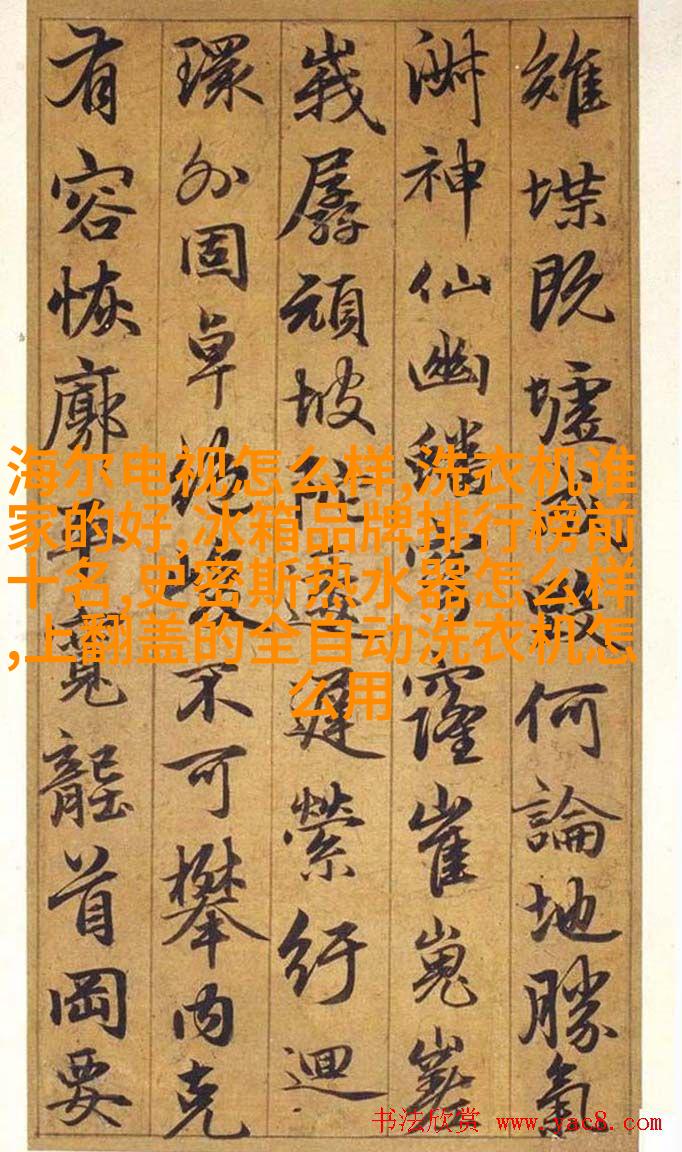 雉堞既墟何論地勝氣
神仙幽窿崔嵬
峩孱頑坡遲縈紆迴
環外固卓不可攀内克
有容恢廓首岡要
海尔电视怎么样,洗衣机谁
家的好,冰箱品牌排行榜前
十名,史密斯热水器怎么样
,上翻盖的全自动洗衣机怎
么用
书法欣赏 www.yac8.com